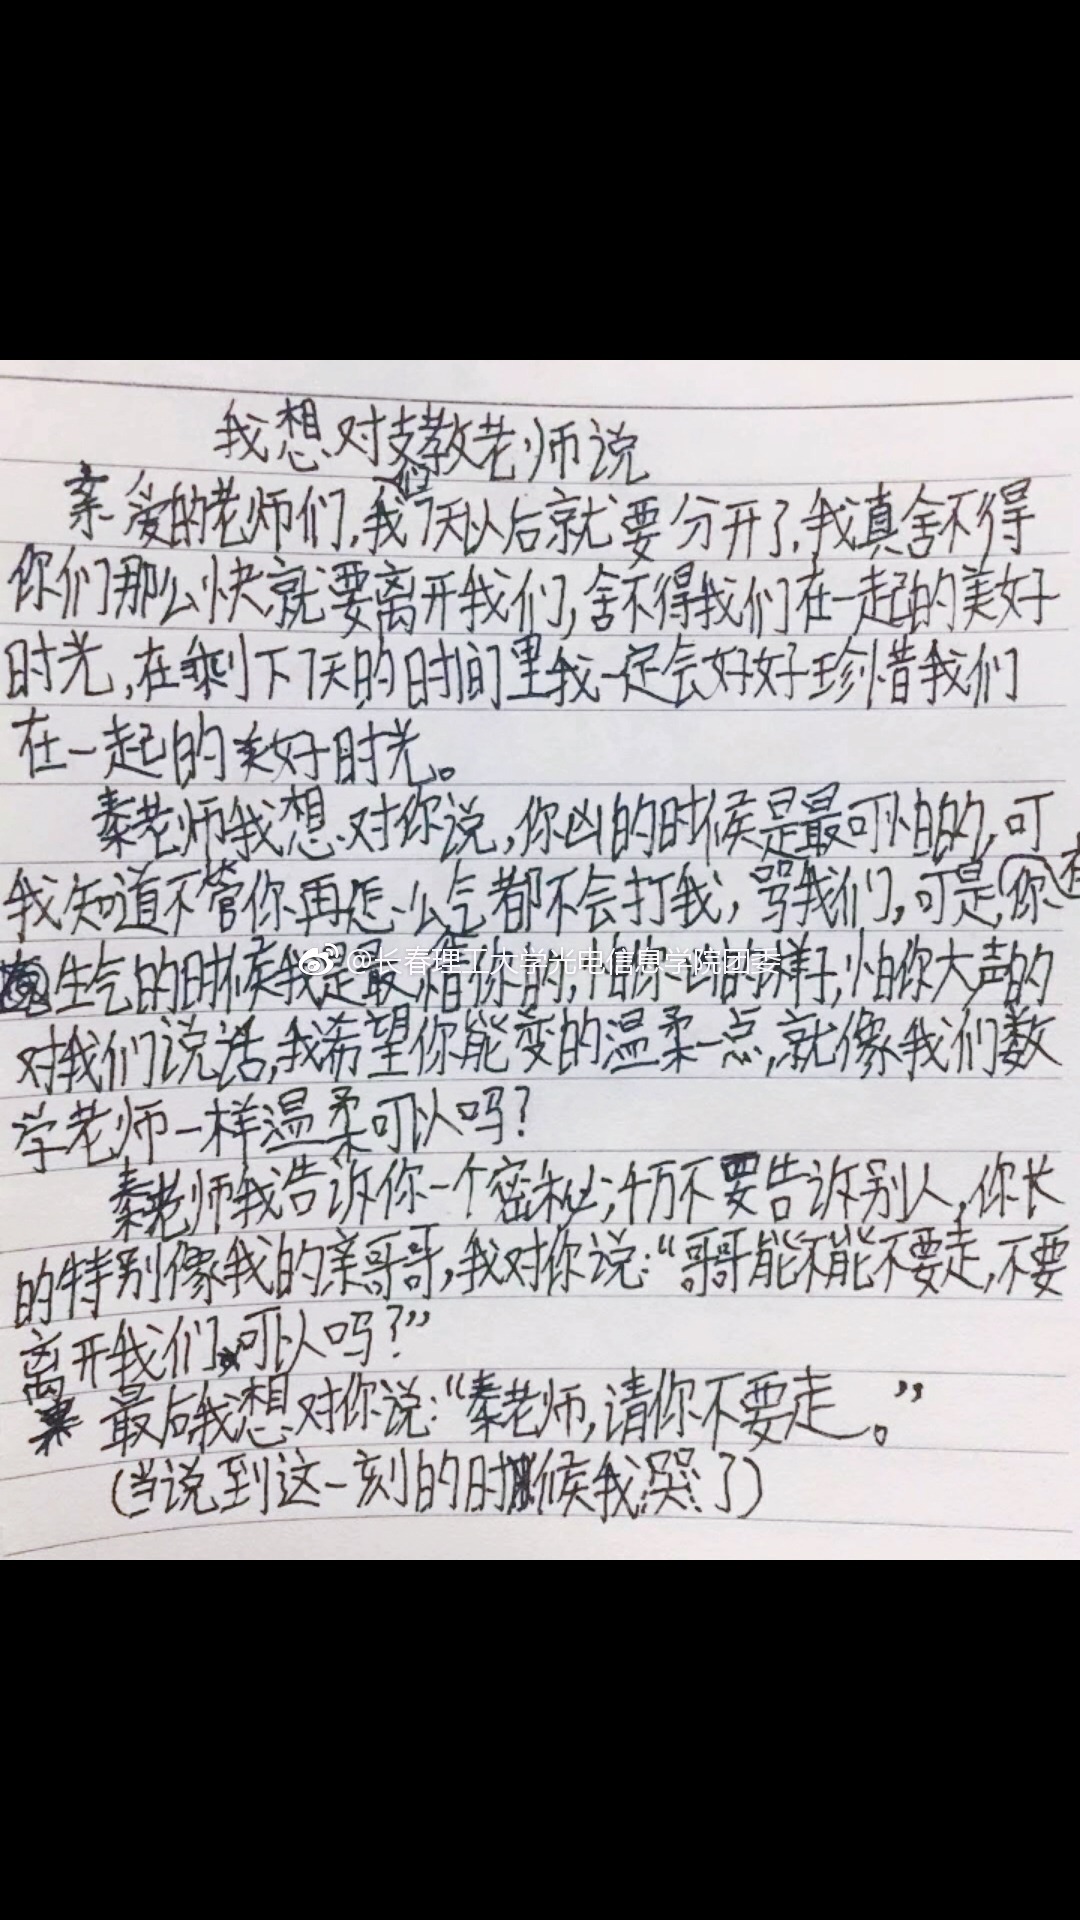 我想对支教老师说
亲爱的老师们,我们7天以后就要分开了,我真舍不得
你们那么快就要离开我们,舍不得我们在一起的美好
时光,在剩下7天的时间里我一定会好好珍惜我们
在一起的美好时光。
秦老师我想对你说,你凶的时候是最可怕的,可
我知道不管你再怎么气都不会打我,骂我们,可是,你在
生气的时候我是最怕你的,怕你凶的样子,怕你大声的
@长春理工大学光电信息学院团委
对我们说话,我希望你能变的温柔一点,就像我们数
学老师一样温柔可以吗?
秦老师我告诉你一个密秘;千万不要告诉别人,你长
的特别像我的亲哥哥,我对你说:“哥哥能不能不要走,不要
离开我们可以吗?”
最后我想对你说:“秦老师,请你不要走。”
(当说到这一刻的时候我哭了)